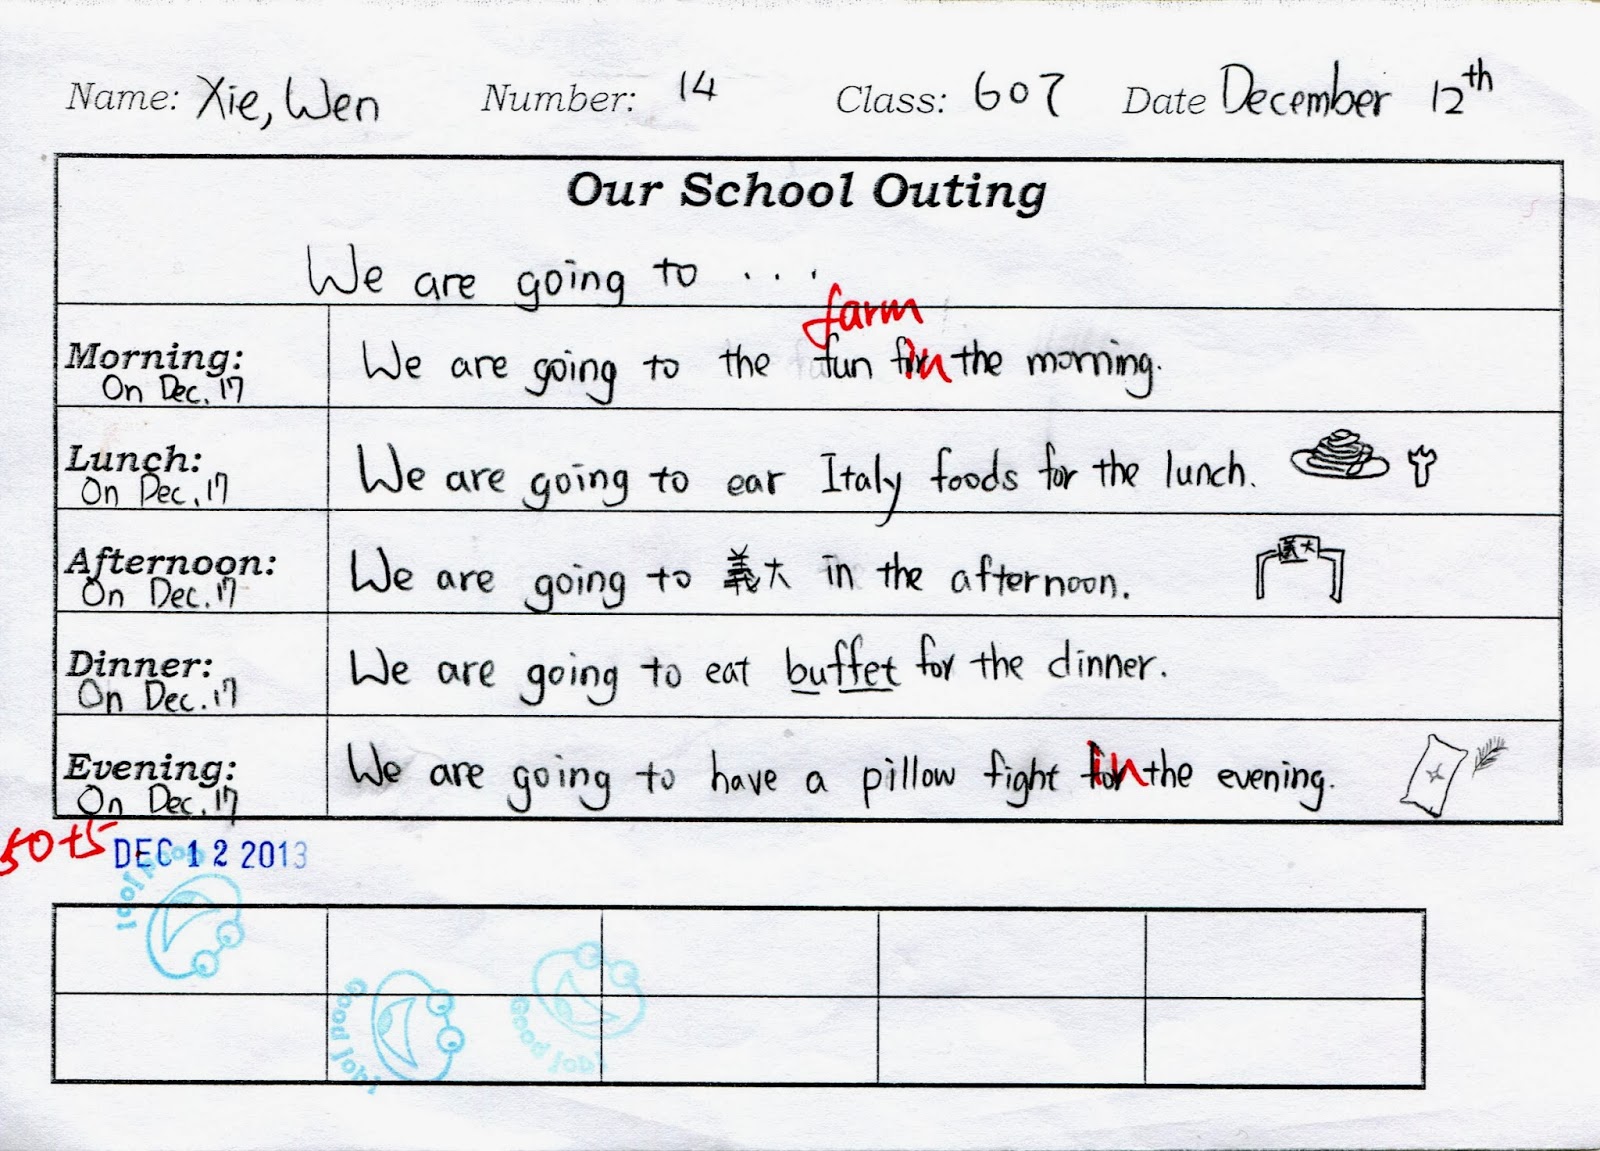 Name: Xie, Wen Number: 14 Class: 607 Date December 12th
Our School Outing
We are going to ...
farm
Morning: We are going to the fun in the morning.
On Dec. 17
Lunch: We are going to ear Italy foods for the lunch.
On Dec. 17
Afternoon: We are going to 義大 in the afternoon. 義大
On Dec. 17
Dinner: We are going to eat buffet for the dinner.
On Dec. 17
Evening: We are going to have a pillow fight for in the evening.
On Dec. 17
50+5 DEC 12 2013
Good job!
Good job!
Good job!